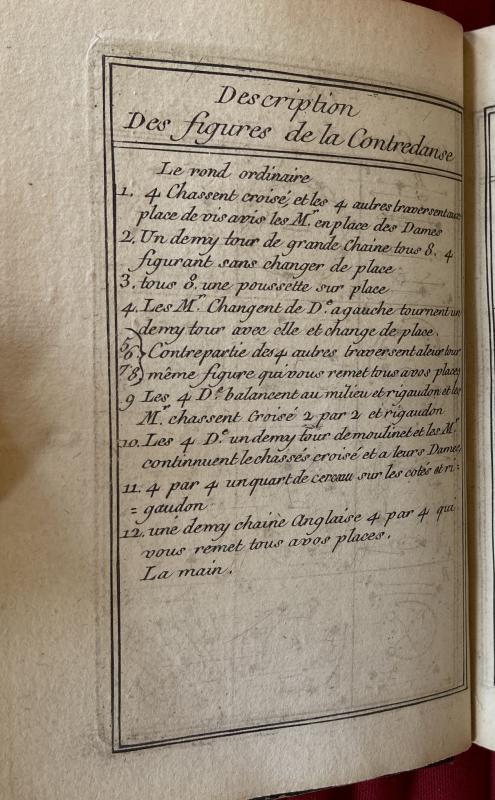 Description
Des figures de la Contredanse
Le rond ordinaire
1. 4 Chassent croisé, et les 4 autres traversent aux
place de vis avis les M.r en place des Dames
2. Un demy tour de grande Chaine tous 8. 4
figurant sans changer de place
3. tous 8. une poussette sur place
4. Les M.r Changent de D.e a gauche tournent un
demy tour avec elle et change de place.
5 6 7 8 } Contrepartie des 4 autres traversent a leur tour
même figure qui vous remet tous a vos places
9 Les 4 D.e balancent au milieu et rigaudon et les
M.r chassent Croisé 2 par 2 et rigaudon
10. Les 4 D.e un demy tour de moulinet et les M.r
continnuent le chassés croisé et a leurs Dames
11. 4 par 4 un quart de cerceau sur les cotés et ri =
= gaudon
12. une demy chaine Anglaise 4 par 4 qui
vous remet tous a vos places.
La main.